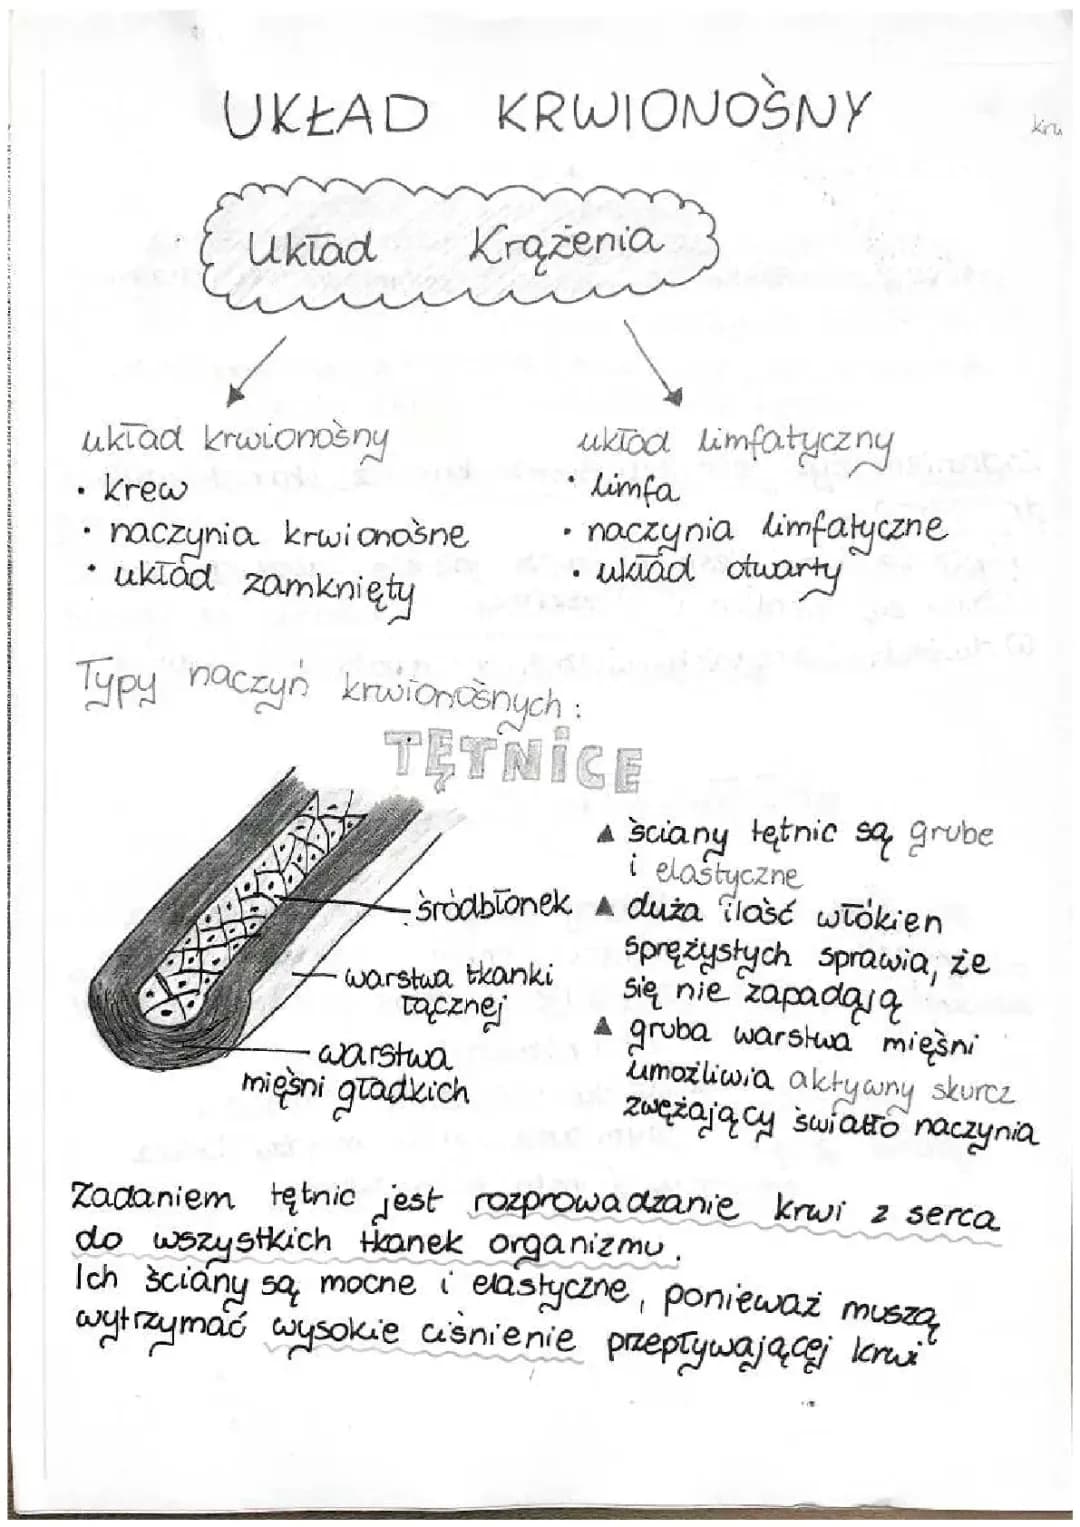 UKŁAD KRWIONOŚNY
Układ Krążenia
układ krwionośny
• krew
• naczynia krwionośne
• układ zamknięty
układ limfatyczny
• limfa
• naczynia limfatyczne
• układ otwarty
Typy naczyń krwionośnych:
TĘTNICE
śródbłonek
warstwa tkanki
łącznej
warstwa
mięśni gładkich
▲ ściany tętnic są grube
i elastyczne
▲ duża ilość włókien
sprężystych sprawia, że
się nie zapadają
▲ gruba warstwa mięśni
umożliwia aktywny skurcz
zwężający światło naczynia
Zadaniem tętnic jest rozprowadzanie krwi z serca
do wszystkich tkanek organizmu.
Ich ściany są mocne i elastyczne, ponieważ muszą
wytrzymać wysokie ciśnienie przepływającej krwi